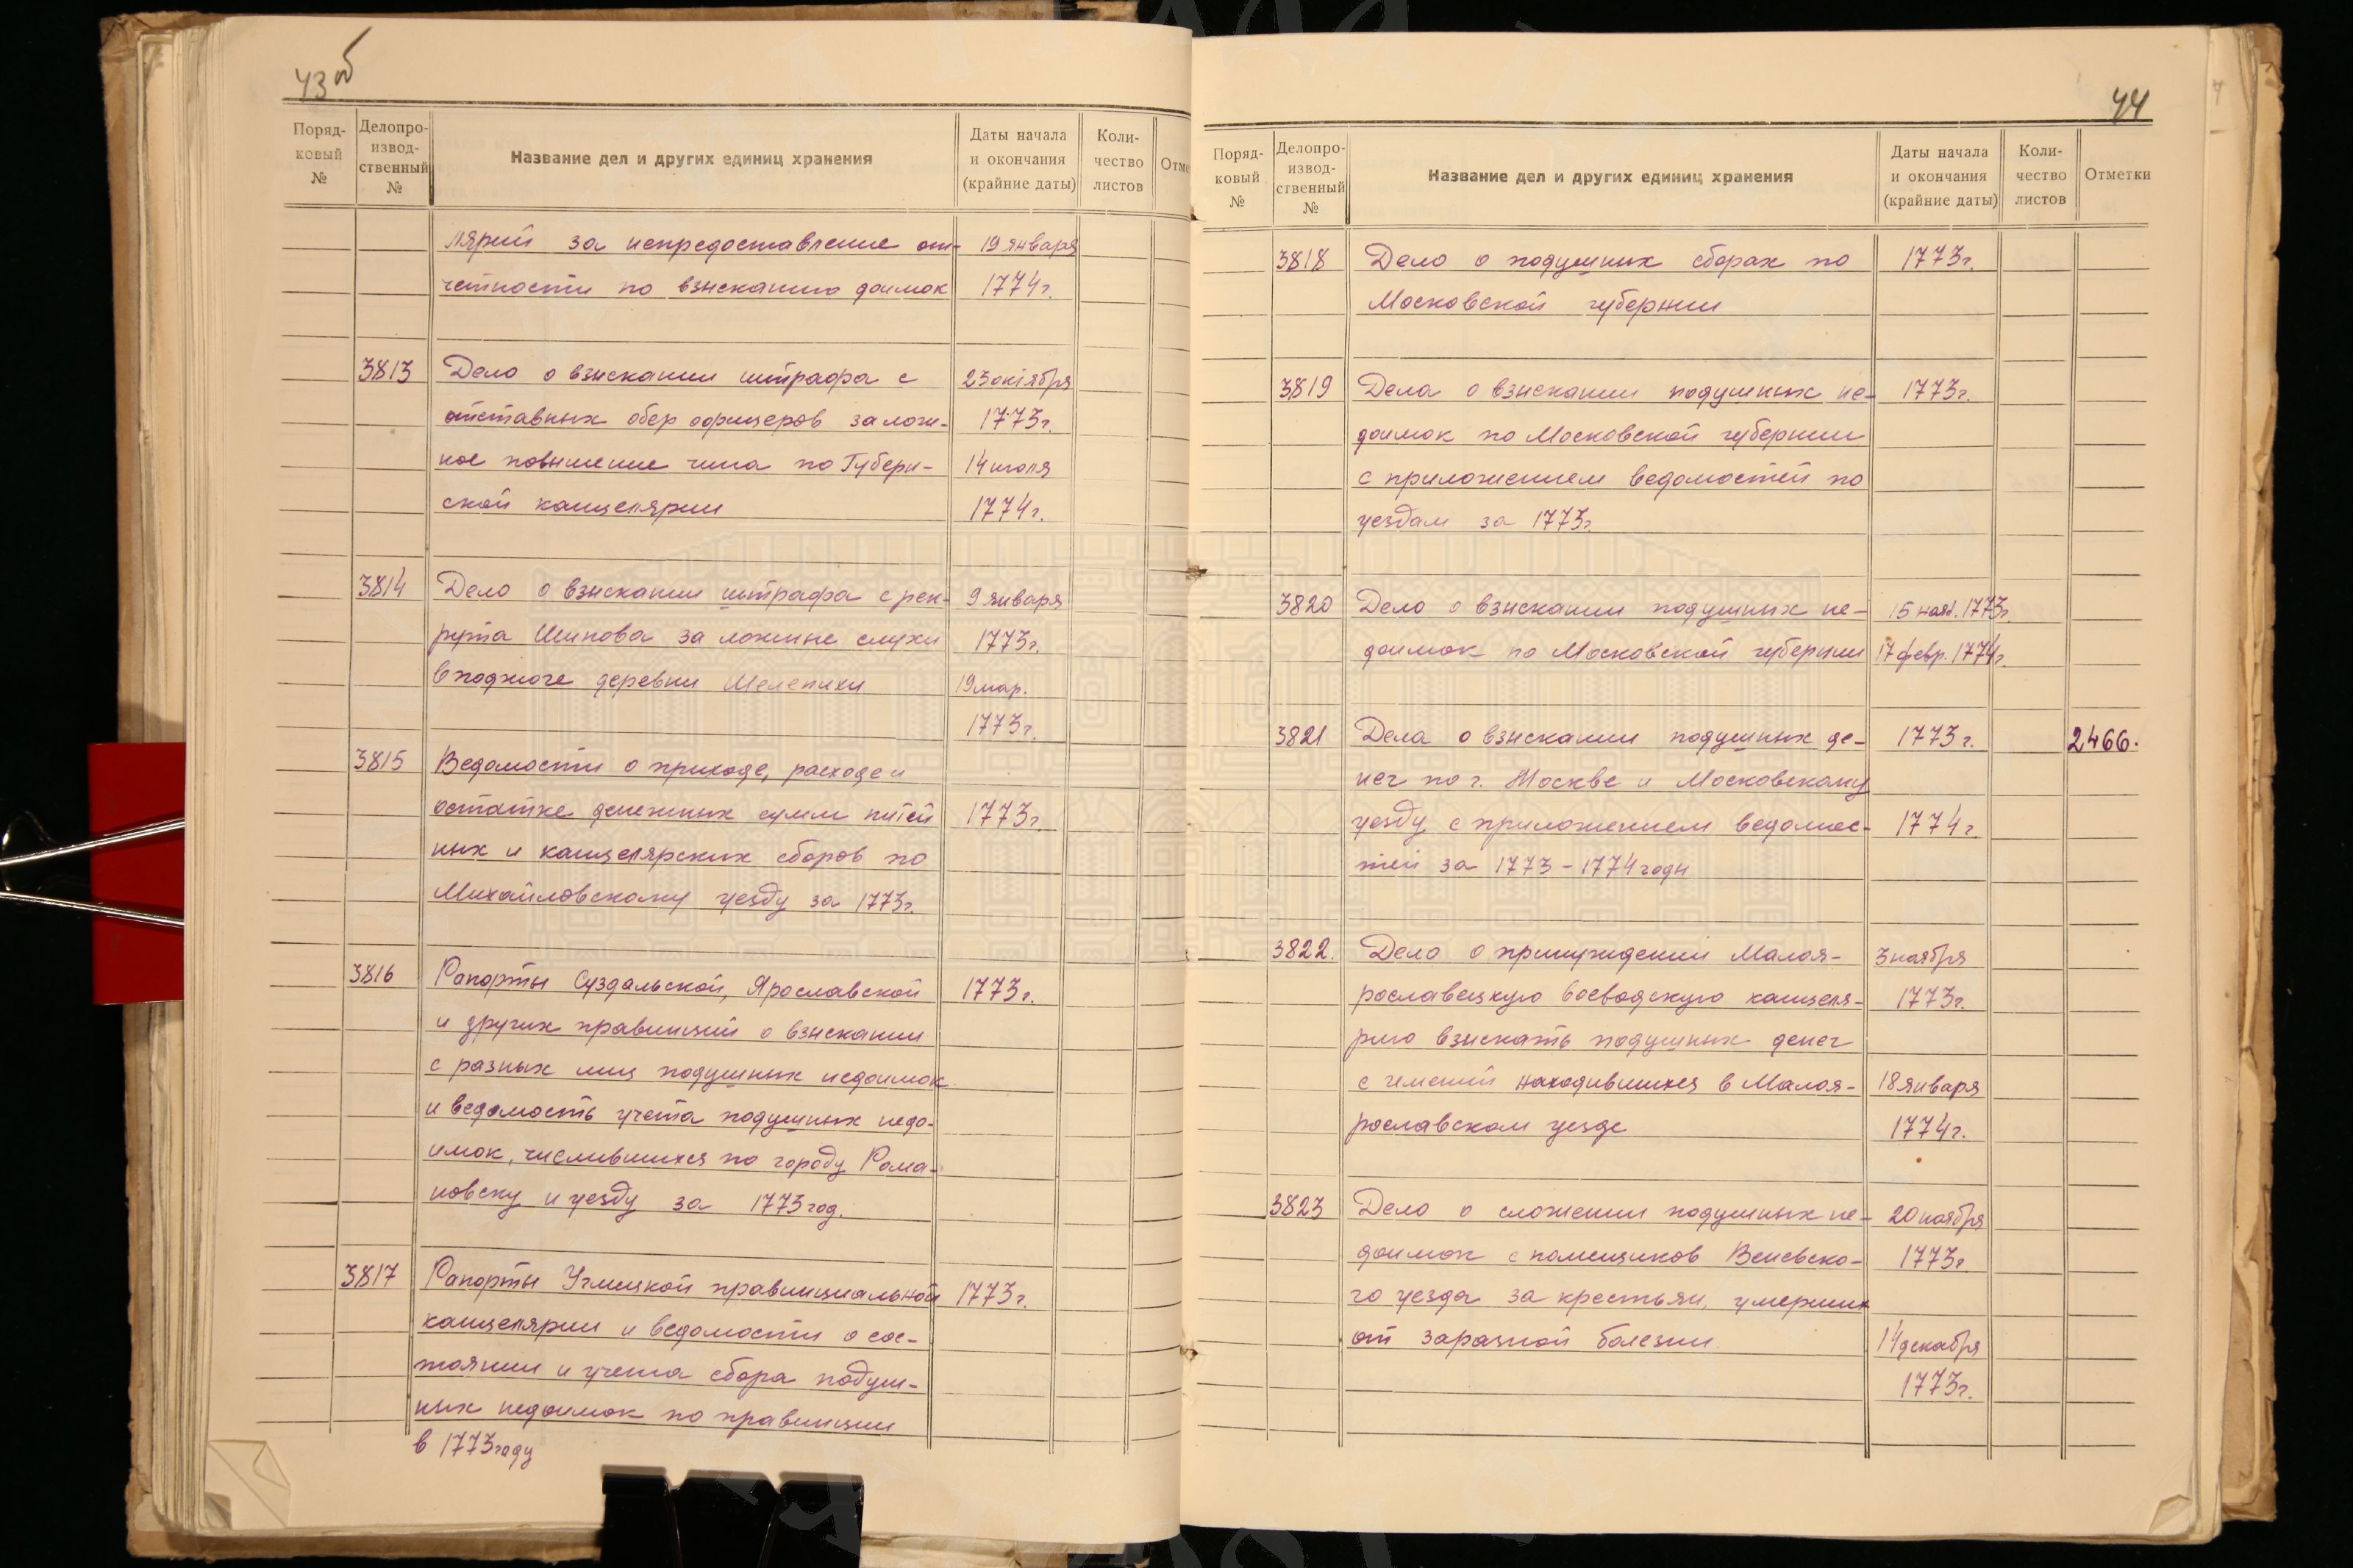 43об
Поряд-
ковый
№
Делопро-
извод-
ственный
№
Название дел и других единиц хранения
Даты начала
и окончания
(крайние даты)
Коли-
чество
листов
Отме
лярий за непредоставление от- 19 января
четности по взысканию доимок 1774г.
3813 Дело о взыскании штрафа с 23 октября
отставных обер офицеров за лож- 1773г.
ное повышение чина по Губерн- 14 июля
ской канцелярии 1774г.
3814 Дело о взыскании штрафа с рек- 9 января
рута Шипова за ложные слухи 1773г.
в поджоге деревни Шелепихи 19 мар.
1773г.
3815 Ведомости о приходе, расходе и
остатке денежных сумм питей 1773г.
ных и канцелярских сборов по
Михайловскому уезду за 1773г.
3816 Рапорты Суздальской, Ярославской 1773г.
и других правинций о взыскании
с разных лиц подушных недоимок
и ведомость учета подушных недо-
имок, числившихся по городу Рома-
новску и уезду за 1773 год.
3817 Рапорты Углицкой правинциальной 1773г.
канцелярии и ведомости о сос-
тоянии и учета сбора подуш-
ных недоимок по правинции
в 1773 году
44
Поряд-
ковый
№
Делопро-
извод-
ственный
№
Название дел и других единиц хранения
Даты начала
и окончания
(крайние даты)
Коли-
чество
листов
Отметки
3818 Дело о подушных сборах по 1773г.
Московской губернии
3819 Дела о взыскании подушных не- 1773г.
доимок по Московской губернии
с приложением ведомостей по
уездам за 1773г.
3820 Дело о взыскании подушных не- 15 нояб. 1773г
доимок по Московской губернии 17 февр. 1774г.
3821 Дела о взыскании подушных де- 1773г. 2466.
нег по г. Москве и Московскому
уезду с приложением ведомос- 1774г.
тей за 1773-1774 годы
3822. Дело о принуждении Малоя- 3 ноября
рославецкую воеводскую канцеля- 1773г.
рию взыскать подушных денег
с имений находившихся в Малоя- 18 января
рославском уезде 1774г.
3823 Дело о сложении подушных не- 20 ноября
доимок с помещиков Веневско- 1773г.
го уезда за крестьян, умерших
от заразной болезни. 14 декабря
1773г.